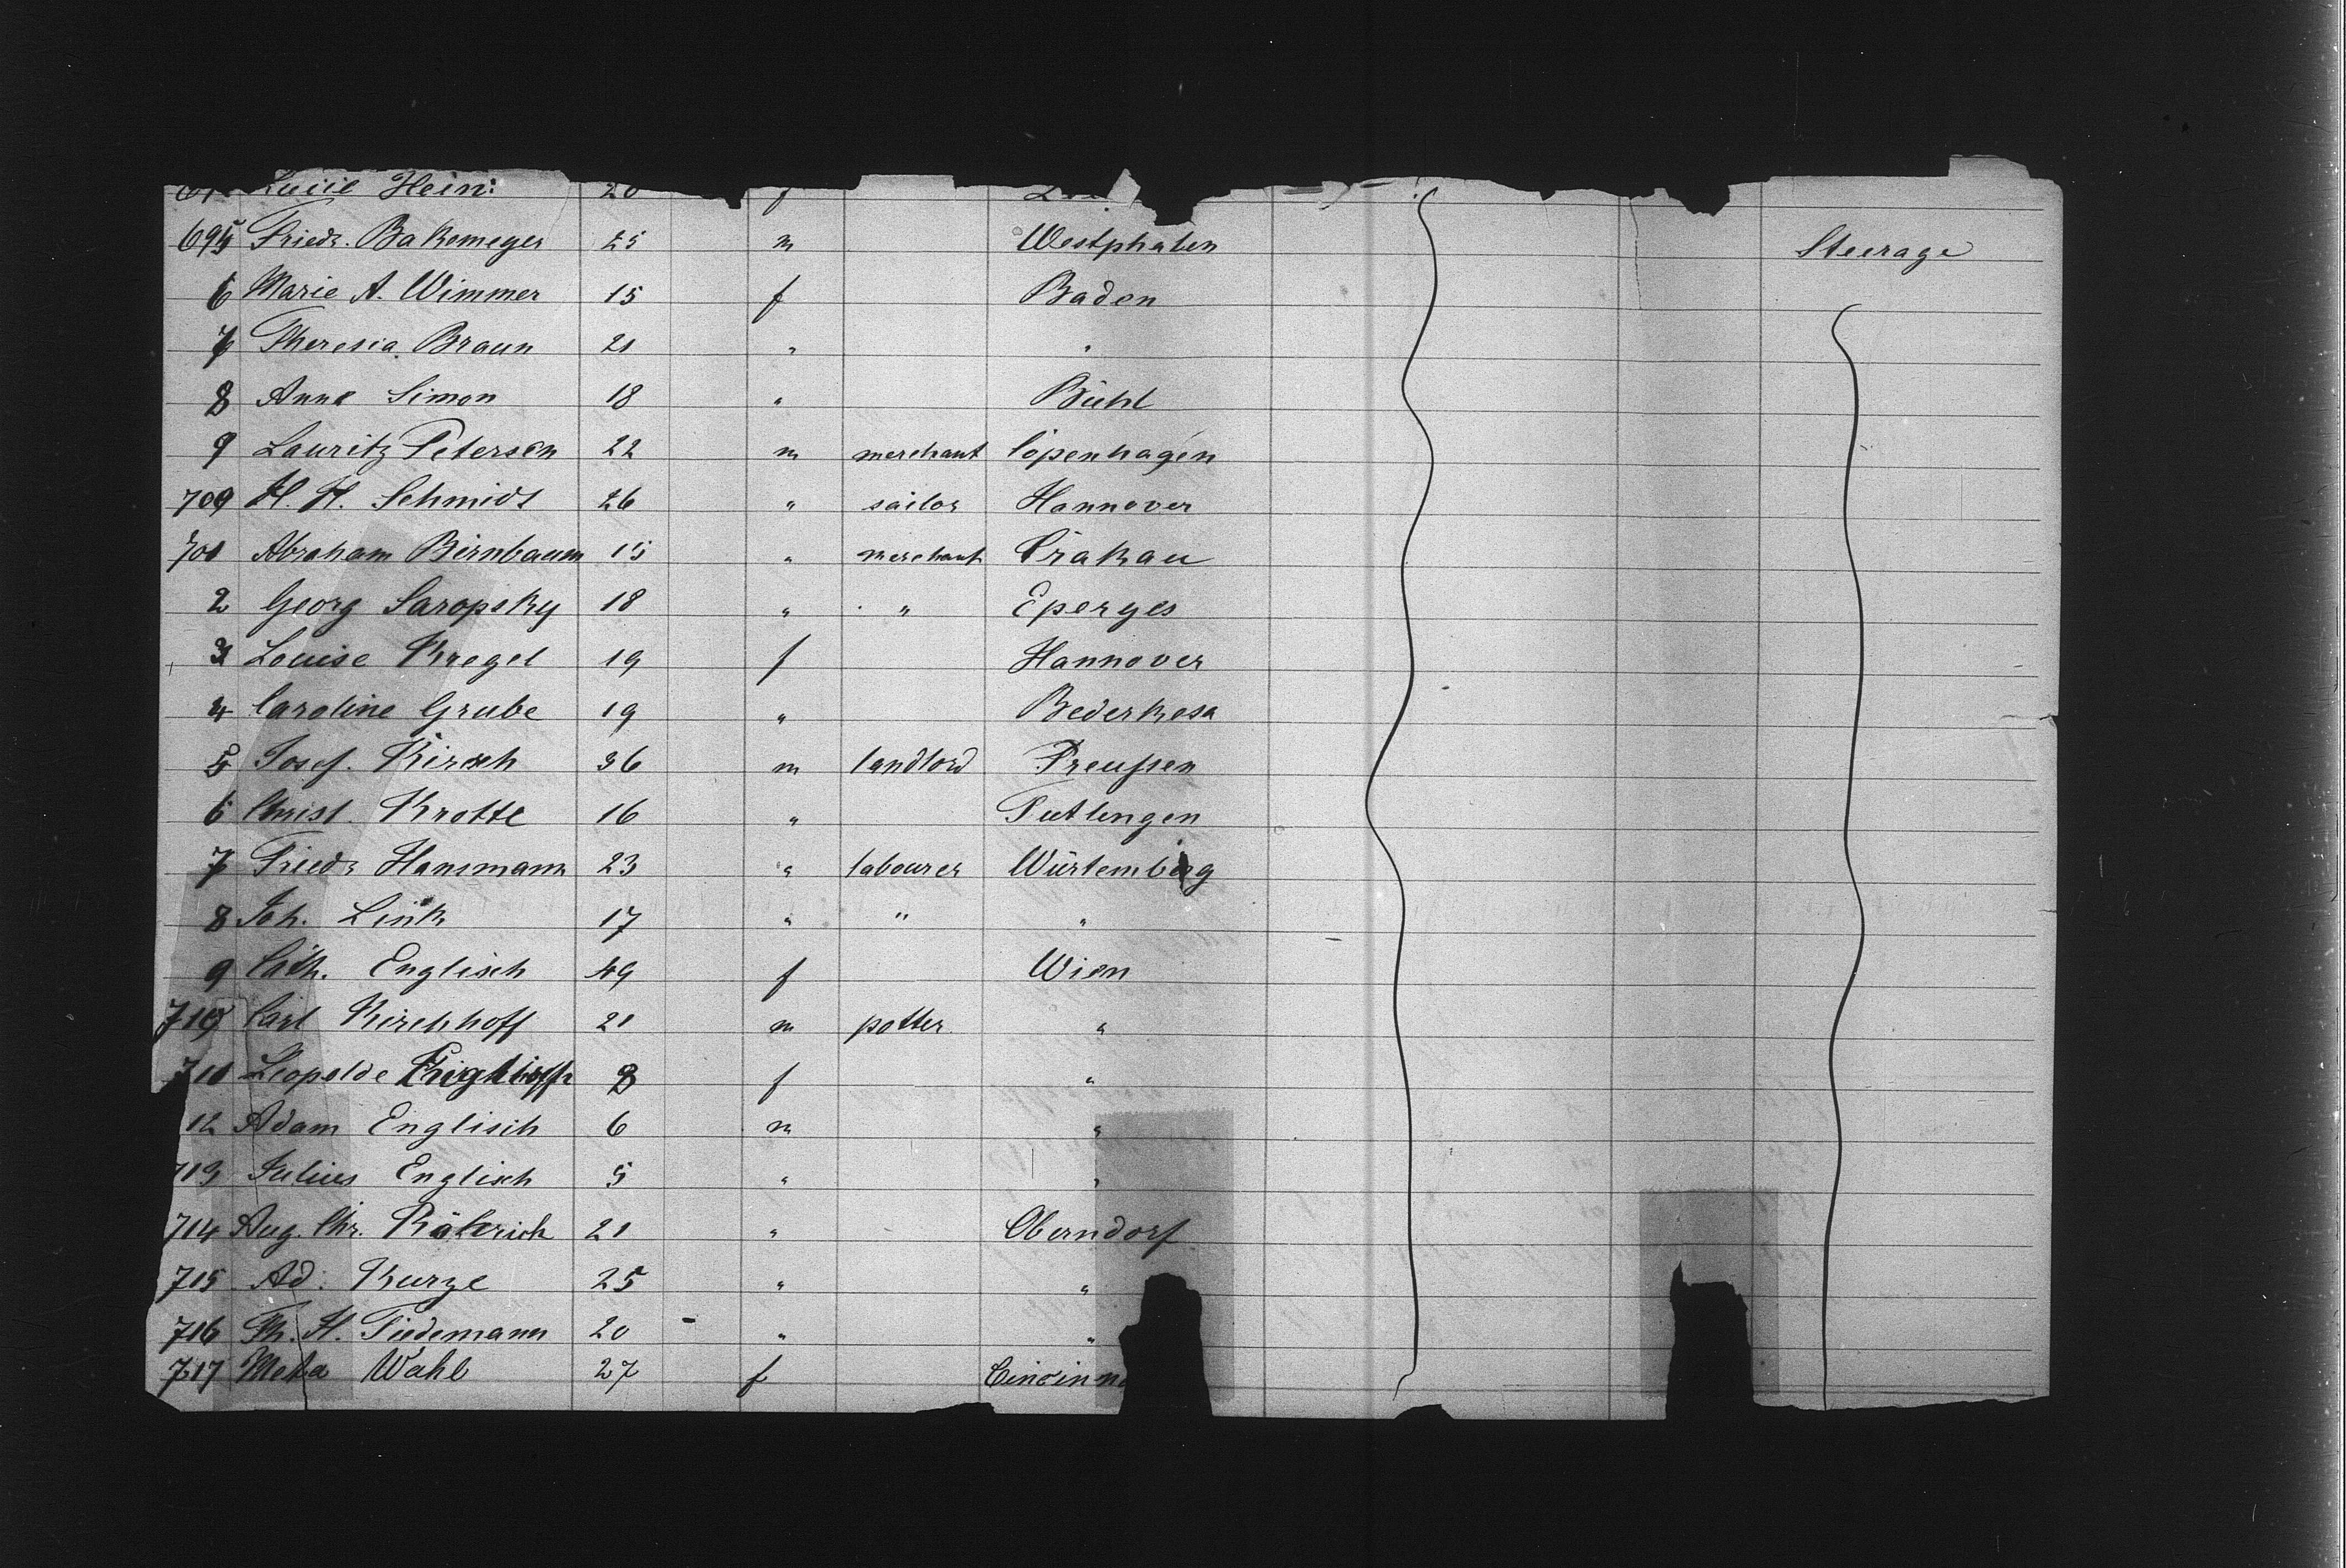 Hein: 20 f
695 Friedr. Bakemeyer 25 m Westphalen Steerage
6 Marie A. Wimmer 15 f Baden
7 Theresia Braun 21 " "
8 Anna Simon 18 " Bühl
9 Lauritz Petersen 22 m merchant Copenhagen
700 H. H. Schmidt 26 " sailor Hannover
701 Abraham Birnbaum 15 " merchant Crakau
2 Georg Saropsky 18 " " Eperyes
3 Louise Kregel 19 f Hannover
4 Caroline Grube 19 " Bederkesa
5 Josef. Kirsch 36 m landlord Preußen
6 Christ. Krotte 16 " Tutlingen
7 Friedr Hansmann 23 " labourer Würtemberg
8 Joh. Link 17 " " "
9 Cath. Englisch 49 f Wien
710 Carl Kirchhoff 21 m potter "
711 Leopolde 8 f "
12 Adam Englisch 6 m "
713 Julius Englisch 5 " "
714 Aug. Chr. 21 " Oberndorf
715 Ad. Kurze 25 " "
716 Th. H. Tiedemann 20 " "
717 Meta Wahl 27 f Cincinn